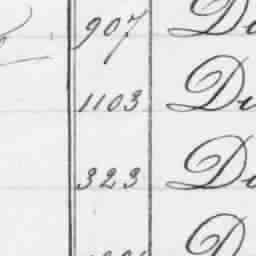 907 Do
1103 Du
323 Do